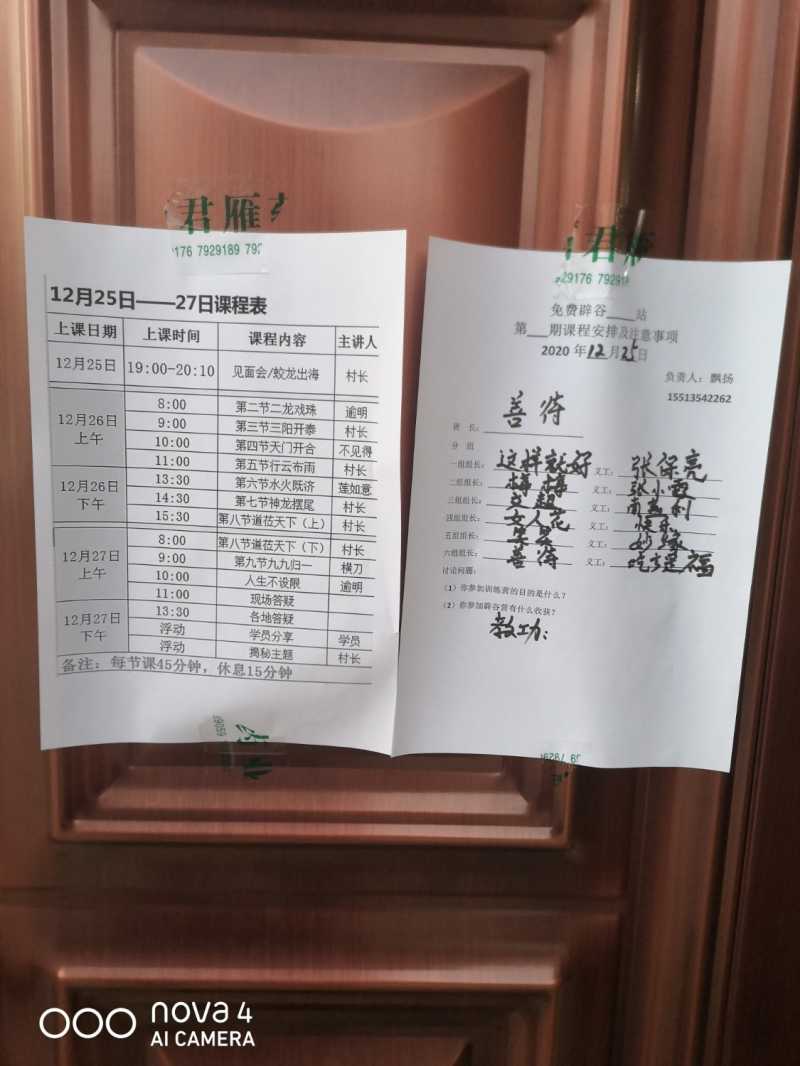 君雁
176 7929189 792
12月25日——27日课程表
上课日期 上课时间 课程内容 主讲人
12月25日 19:00-20:10 见面会/蛟龙出海 村长
12月26日上午 8:00 第二节二龙戏珠 逾明
9:00 第三节三阳开泰 村长
10:00 第四节天门开合 不见得
11:00 第五节行云布雨 村长
12月26日下午 13:30 第六节水火既济 莲如意
14:30 第七节神龙摆尾 村长
15:30 第八节道莅天下（上） 村长
12月27日上午 8:00 第八节道莅天下（下） 村长
9:00 第九节九九归一 横刀
10:00 人生不设限 逾明
11:00 现场答疑
12月27日下午 13:30 各地答疑
浮动 学员分享 学员
浮动 揭秘主题 村长
备注：每节课45分钟，休息15分钟
君雁
29176 792918
免费辟谷____站
第___期课程安排及注意事项
2020 年12月25日
负责人：飘扬
15513542262
班 长：善待
分 组
一组组长：这样就好 义工：张保亮
二组组长： 义工：张小霞
三组组长： 义工：
四组组长：女人花 义工：快乐
五组组长： 义工：妙缘
六组组长：善待 义工：吃亏是福
讨论问题：
（1）你参加训练营的目的是什么？
（2）你参加辟谷营有什么收获？
教功：
nova 4
AI CAMERA